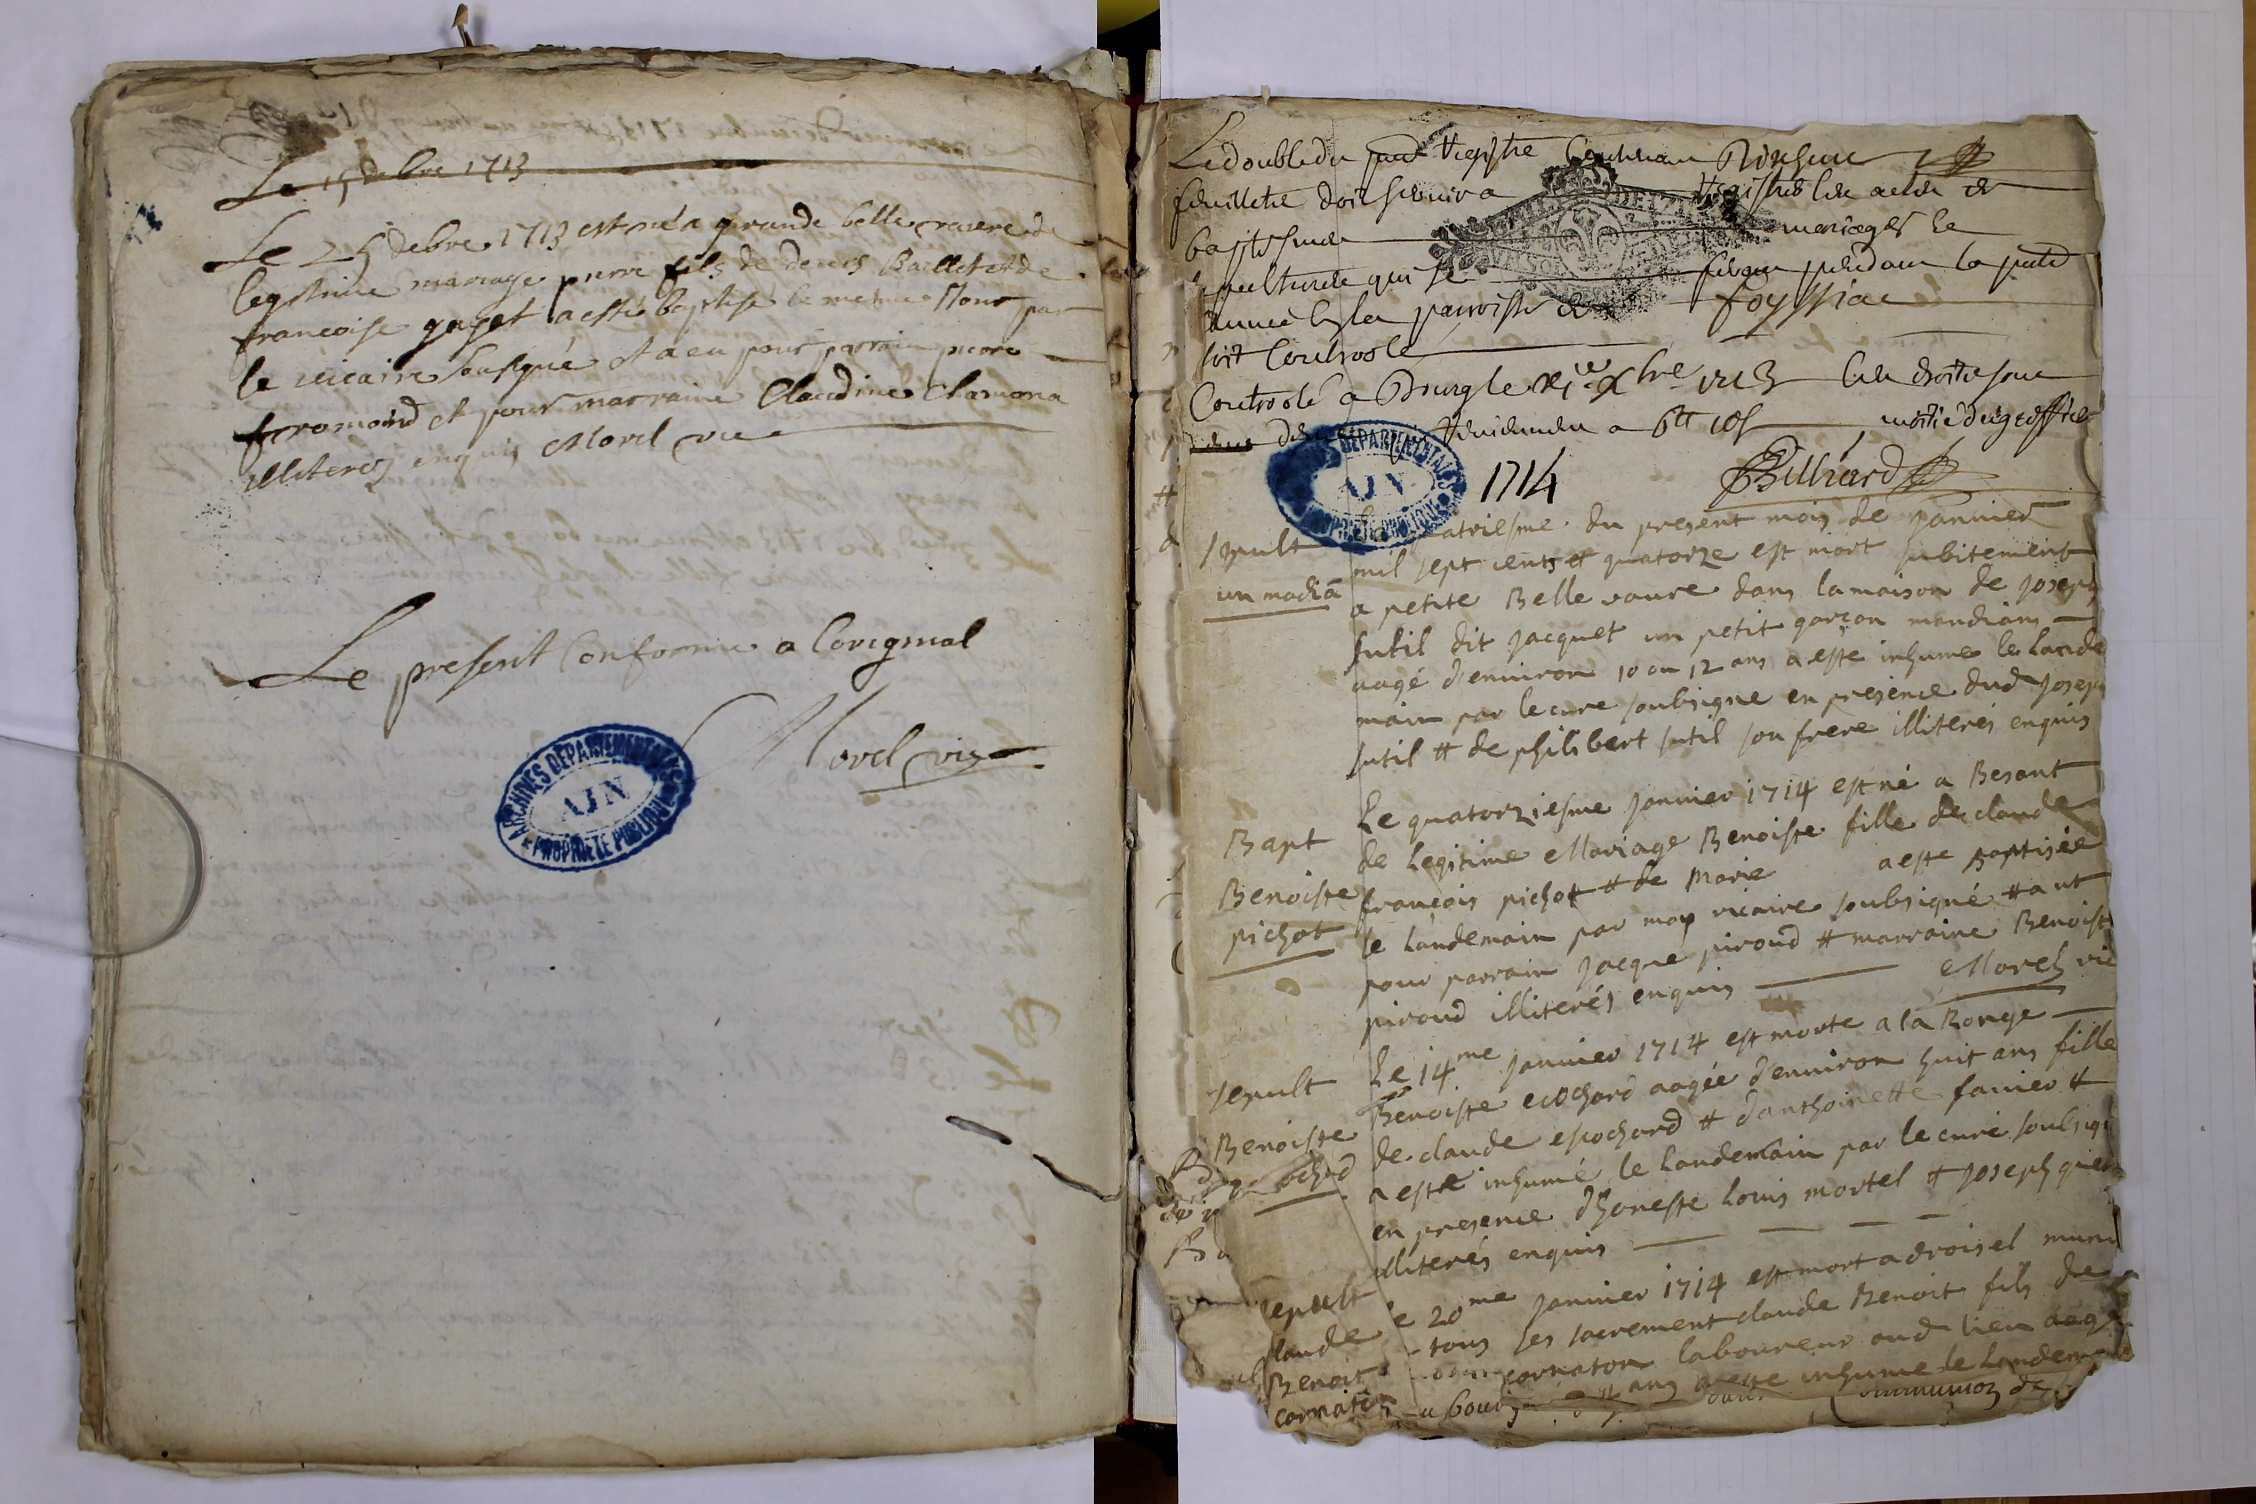 Le 15 debre 1713
Le 25 debre 1713 est né a grande belle vavere de
legitime mariage pierre fils de denis Baillet et de
francoise gaget a esté baptisé le mesme Jour par
le vicaire sousigné et a eu pour parrain pierre
froromond et pour marraine Claudine Chamona
illiterez enquis Morel vic
Le present Conforme a Loriginal
Morel vic
ARCHIVES DEPARTEMENTALES
AIN
PROPRIETE PUBLIQUE
Le double du pnt Registre Contenant
feuillets doit servir a Registrer les actes de
baptesmes mariages et
sepultures qui se feront pendant la pnte
année en la parroisse de foyssiac
soit Controolé
Controolé a Bourg le xbre 1713 les droits
a 6tt 10s moitié du greffier
ARCHIVES DEPARTEMENTALES
AIN
PROPRIETE PUBLIQUE
1714
Billiard
sepult
un madiã
quatriesme du present mois de Janvier
mil sept cents et quatorze est mort subitement
a petite Belle vavre dans la maison de Joseph
sutil dit Jacquet un petit garçon mandiant
aagé d'environ 10 ou 12 ans a esté inhumé le lande
main par le curé soubsigné en presence dud Joseph
sutil et de philibert sutil son frere illiterés enquis
Bapt
Benoiste
pichot
Le quatorziesme Janvier 1714 est né a Besant
de legitime Mariage Benoiste fille de claude
françois pichot et de Marie a esté Baptisée
le landemain par moy vicaire soubsigné et a ut
pour parrain Jacque piroud et marraine Benoist
piroud illiterés enquis Morel vic
sepult
Benoiste
Le 14me Janvier 1714 est morte a la Ronge
Benoiste ecochard aagée d'environ huit ans fille
de claude escochard et d'anthoinette favier et
a esté inhumé le landemain par le curé soubsig
en presence d'honeste Louis mortel et Joseph
illiterés enquis
sepult
claude
Benoit
cornaton
le 20me Janvier 1714 est mort a droisel muni
tous ses sacrement claude Benoit fils de
cornaton laboureur aud lieu aagé
ans a esté inhumé le landemain